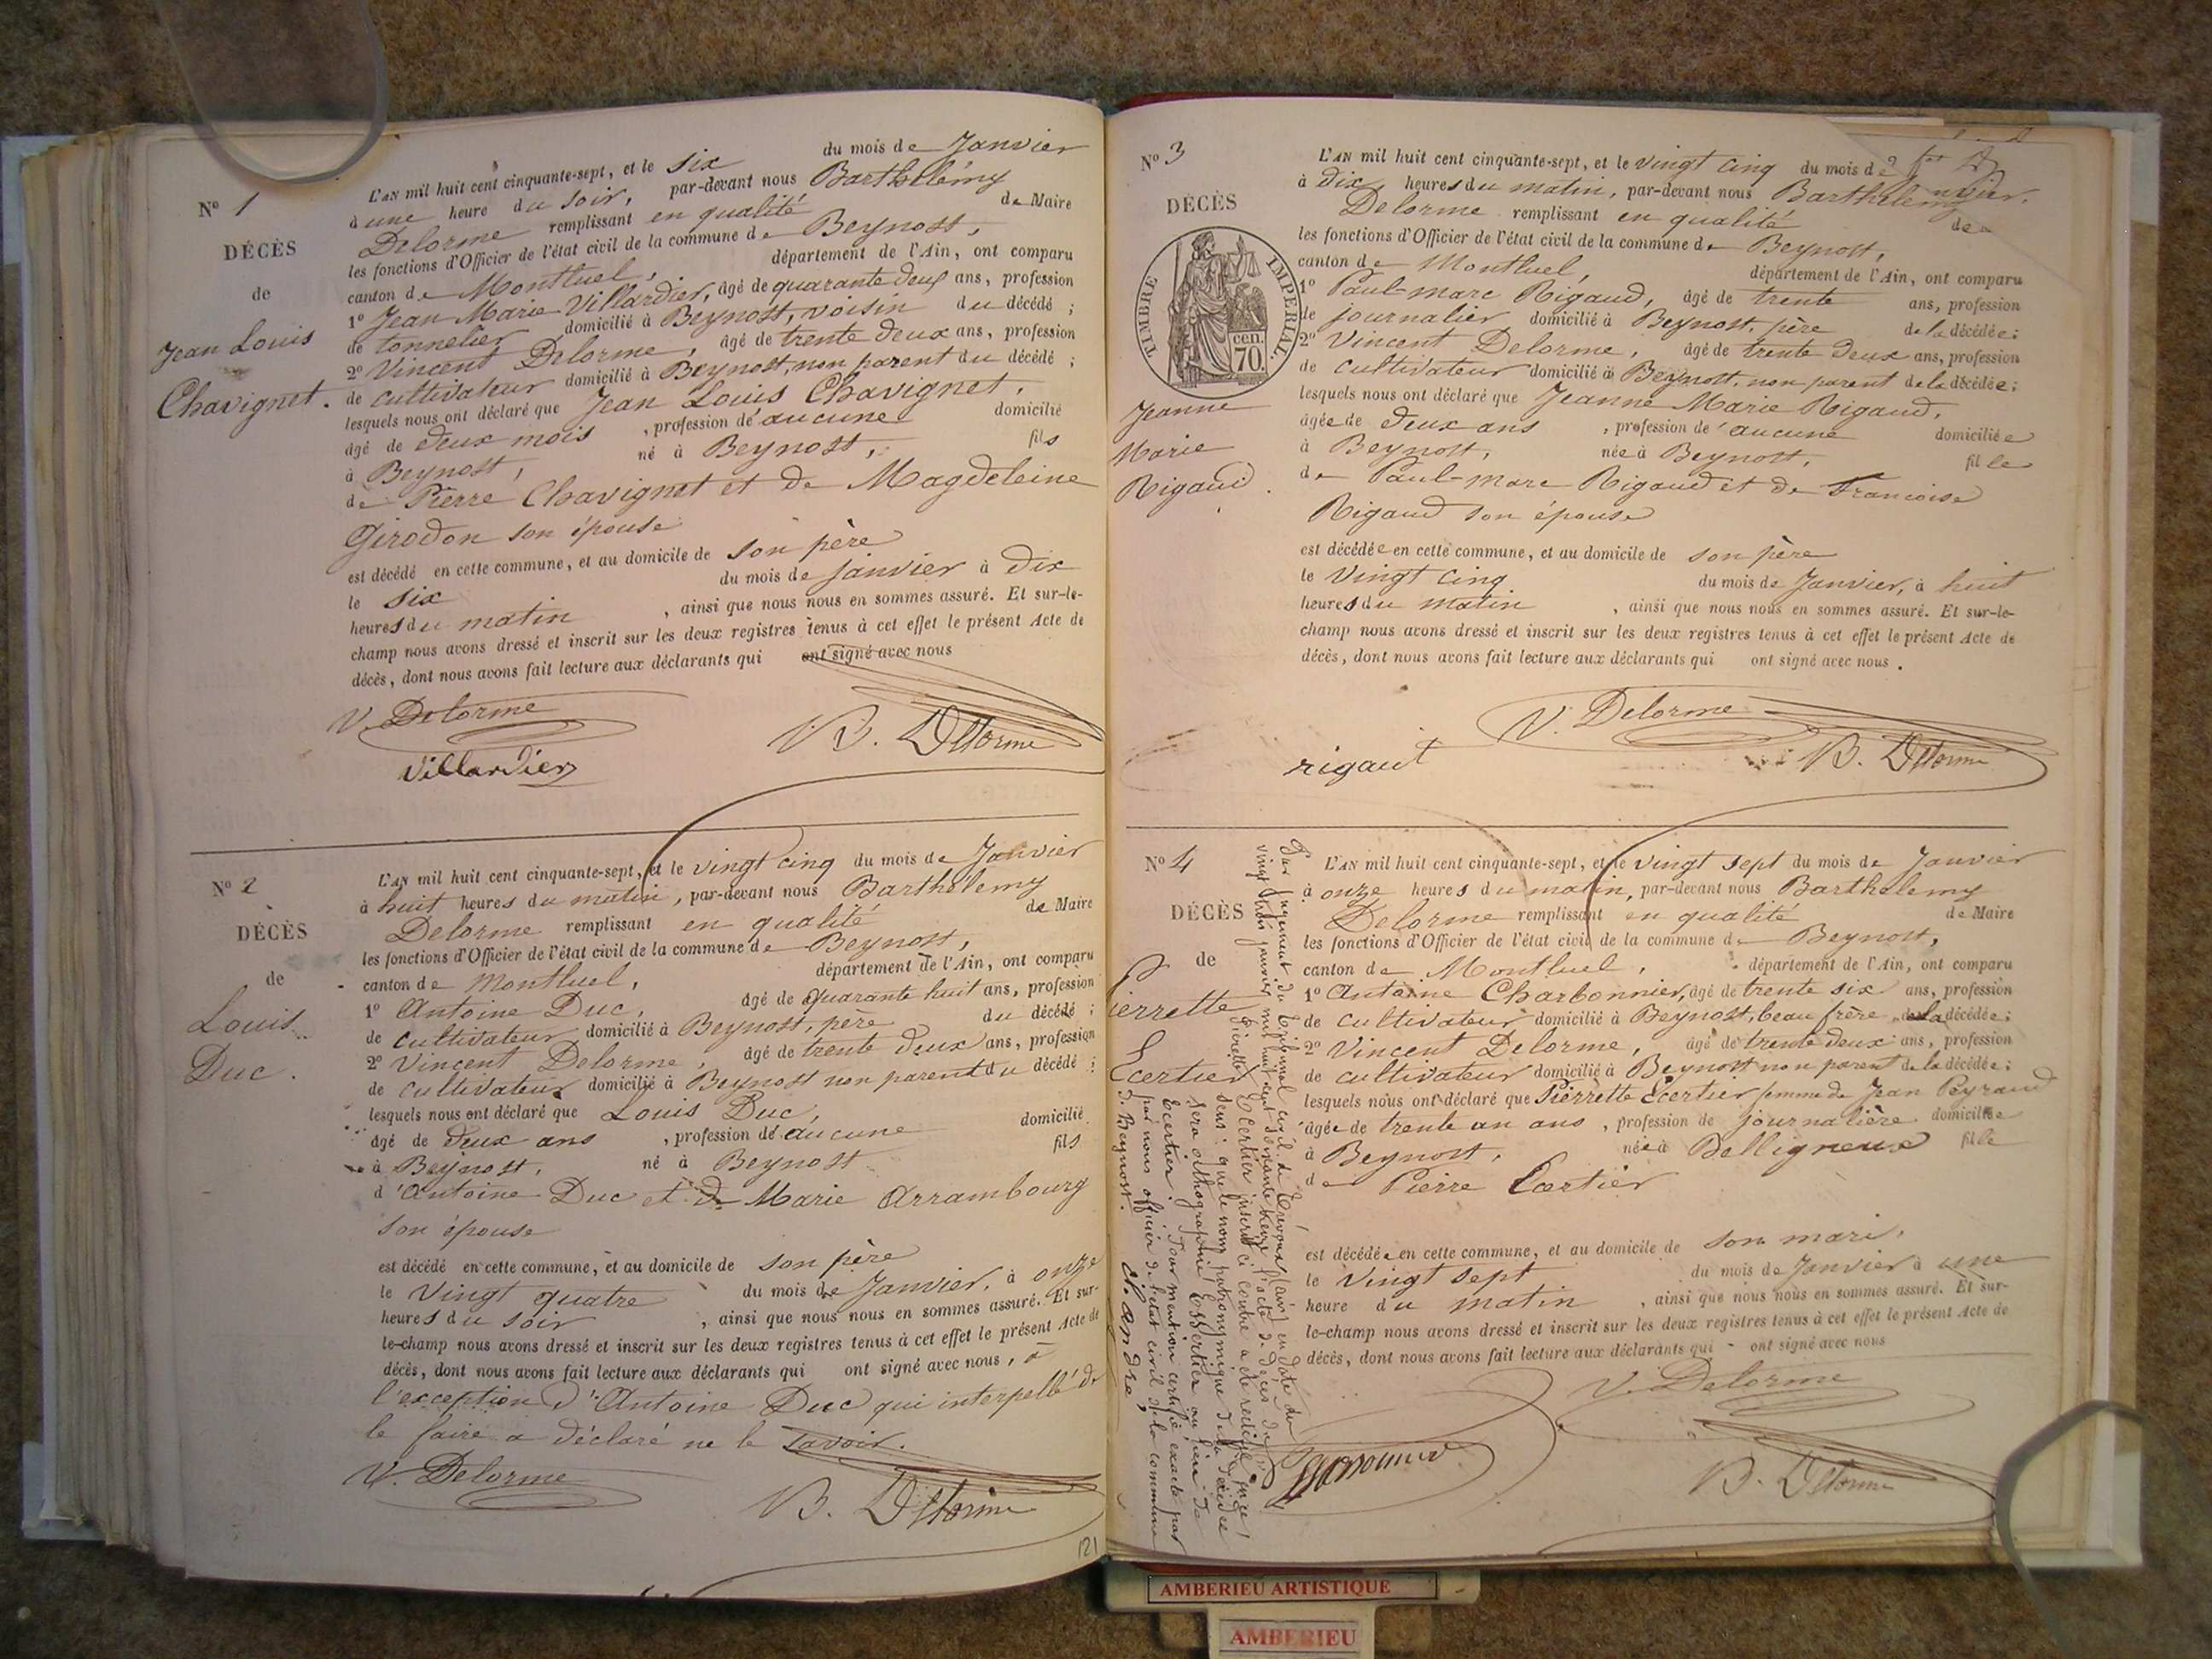 Nº 1
DÉCÈS
de
Jean Louis
Chavignet.
L'AN mil huit cent cinquante-sept, et le six du mois de Janvier
à une heure du soir, par-devant nous Barthélémy
Delorme remplissant en qualité de Maire
les fonctions d'Officier de l'état civil de la commune de Beynost,
canton de Montluel, département de l'Ain, ont comparu
1º Jean Marie Villardier, âgé de quarante deux ans, profession
de tonnelier domicilié à Beynost, voisin du décédé ;
2º Vincent Delorme, âgé de trente deux ans, profession
de cultivateur domicilié à Beynost, non parent du décédé ;
lesquels nous ont déclaré que Jean Louis Chavignet,
âgé de deux mois, profession de aucune domicilié
à Beynost, né à Beynost, fils
de Pierre Chavignet et de Magdeleine
Girodon son épouse
est décédé en cette commune, et au domicile de son père
le six du mois de janvier à dix
heures du matin, ainsi que nous nous en sommes assuré. Et sur-le-
champ nous avons dressé et inscrit sur les deux registres tenus à cet effet le présent Acte de
décès, dont nous avons fait lecture aux déclarants qui ont signé avec nous
V. Delorme
B. Delorme
Villardier
Nº 2
DÉCÈS
de
Louis
Duc.
L'AN mil huit cent cinquante-sept, et le vingt cinq du mois de Janvier
à huit heures du matin, par-devant nous Barthélemy
Delorme remplissant en qualité de Maire
les fonctions d'Officier de l'état civil de la commune de Beynost,
canton de Montluel, département de l'Ain, ont comparu
1º Antoine Duc, âgé de quarante huit ans, profession
de cultivateur domicilié à Beynost, père du décédé ;
2º Vincent Delorme, âgé de trente deux ans, profession
de cultivateur domicilié à Beynost non parent du décédé ;
lesquels nous ont déclaré que Louis Duc,
âgé de deux ans, profession de aucune domicilié
à Beynost, né à Beynost fils
d'Antoine Duc et de Marie Arrambourg
son épouse
est décédé en cette commune, et au domicile de son père
le vingt quatre du mois de Janvier, à onze
heures du soir, ainsi que nous nous en sommes assuré. Et sur-
le-champ nous avons dressé et inscrit sur les deux registres tenus à cet effet le présent Acte de
décès, dont nous avons fait lecture aux déclarants qui ont signé avec nous, à
l'exception d'Antoine Duc qui interpellé de
le faire a déclaré ne le savoir.
V. Delorme
B. Delorme
121
Nº 3
DÉCÈS
TIMBRE IMPÉRIAL.
cen.
70.
Jeanne
Marie
Rigaud.
L'AN mil huit cent cinquante-sept, et le vingt cinq du mois de
à dix heures du matin, par-devant nous Barthélemy
Delorme remplissant en qualité de
les fonctions d'Officier de l'état civil de la commune de Beynost,
canton de Montluel, département de l'Ain, ont comparu
1º Paul-marc Rigaud, âgé de trente ans, profession
de journalier domicilié à Beynost, père de la décédée ;
2º Vincent Delorme, âgé de trente deux ans, profession
de cultivateur domicilié à Beynost, non parent de la décédée ;
lesquels nous ont déclaré que Jeanne Marie Rigaud,
âgée de deux ans, profession de aucune domiciliée
à Beynost, née à Beynost, fille
de Paul-marc Rigaud et de Francoise
Rigaud son épouse
est décédée en cette commune, et au domicile de son père
le vingt cinq du mois de Janvier, à huit
heures du matin, ainsi que nous nous en sommes assuré. Et sur-le-
champ nous avons dressé et inscrit sur les deux registres tenus à cet effet le présent Acte de
décès, dont nous avons fait lecture aux déclarants qui ont signé avec nous.
V. Delorme
rigaut
B. Delorme
Nº 4
DÉCÈS
de
Pierrette
Ecertier
L'AN mil huit cent cinquante-sept, et le vingt sept du mois de Janvier
à onze heures du matin, par-devant nous Barthélemy
Delorme remplissant en qualité de Maire
les fonctions d'Officier de l'état civil de la commune de Beynost,
canton de Montluel, département de l'Ain, ont comparu
1º Antoine Charbonnier, âgé de trente six ans, profession
de cultivateur domicilié à Beynost, beau frère de la décédée ;
2º Vincent Delorme, âgé de trente deux ans, profession
de cultivateur domicilié à Beynost non parent de la décédée ;
lesquels nous ont déclaré que Pierrette Ecertier femme de Jean Peyraud
âgée de trente un ans, profession de journalière domiciliée
à Beynost, née à Belligneux fille
de Pierre Ecertier
est décédée en cette commune, et au domicile de son mari,
le vingt sept du mois de Janvier à une
heure du matin, ainsi que nous nous en sommes assuré. Et sur-
le-champ nous avons dressé et inscrit sur les deux registres tenus à cet effet le présent Acte de
décès, dont nous avons fait lecture aux déclarants qui ont signé avec nous
V. Delorme
B. Delorme
Par jugement du tribunal civil de Trévoux (Ain) en date du
vingt trois janvier mil huit cent soixante treize l'acte de décès de
Pierrette Ecertier inscrit ci contre a été rectifié en ce
sens : que le nom patronymique de la décédée
sera orthographié Essertier au lieu de
Ecertier. Pour mention certifié exacte par
par nous officier de l'état civil de la commune
de Beynost.
AMBERIEU ARTISTIQUE
AMBERIEU